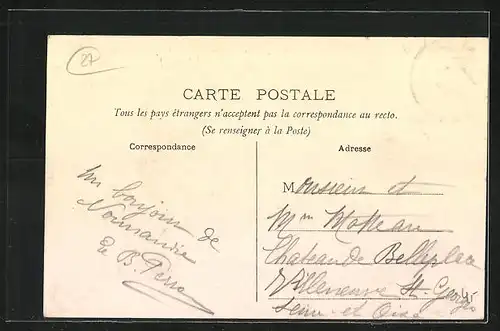 27
CARTE POSTALE
Tous les pays étrangers n'acceptent pas la correspondance au recto.
(Se renseigner à la Poste)
Correspondance
Adresse
un bonjour de
Normandie
de B.
Monsieur et
Mme
Chateau de Belleplace
Villeneuve St. Georges
Seine et Oise